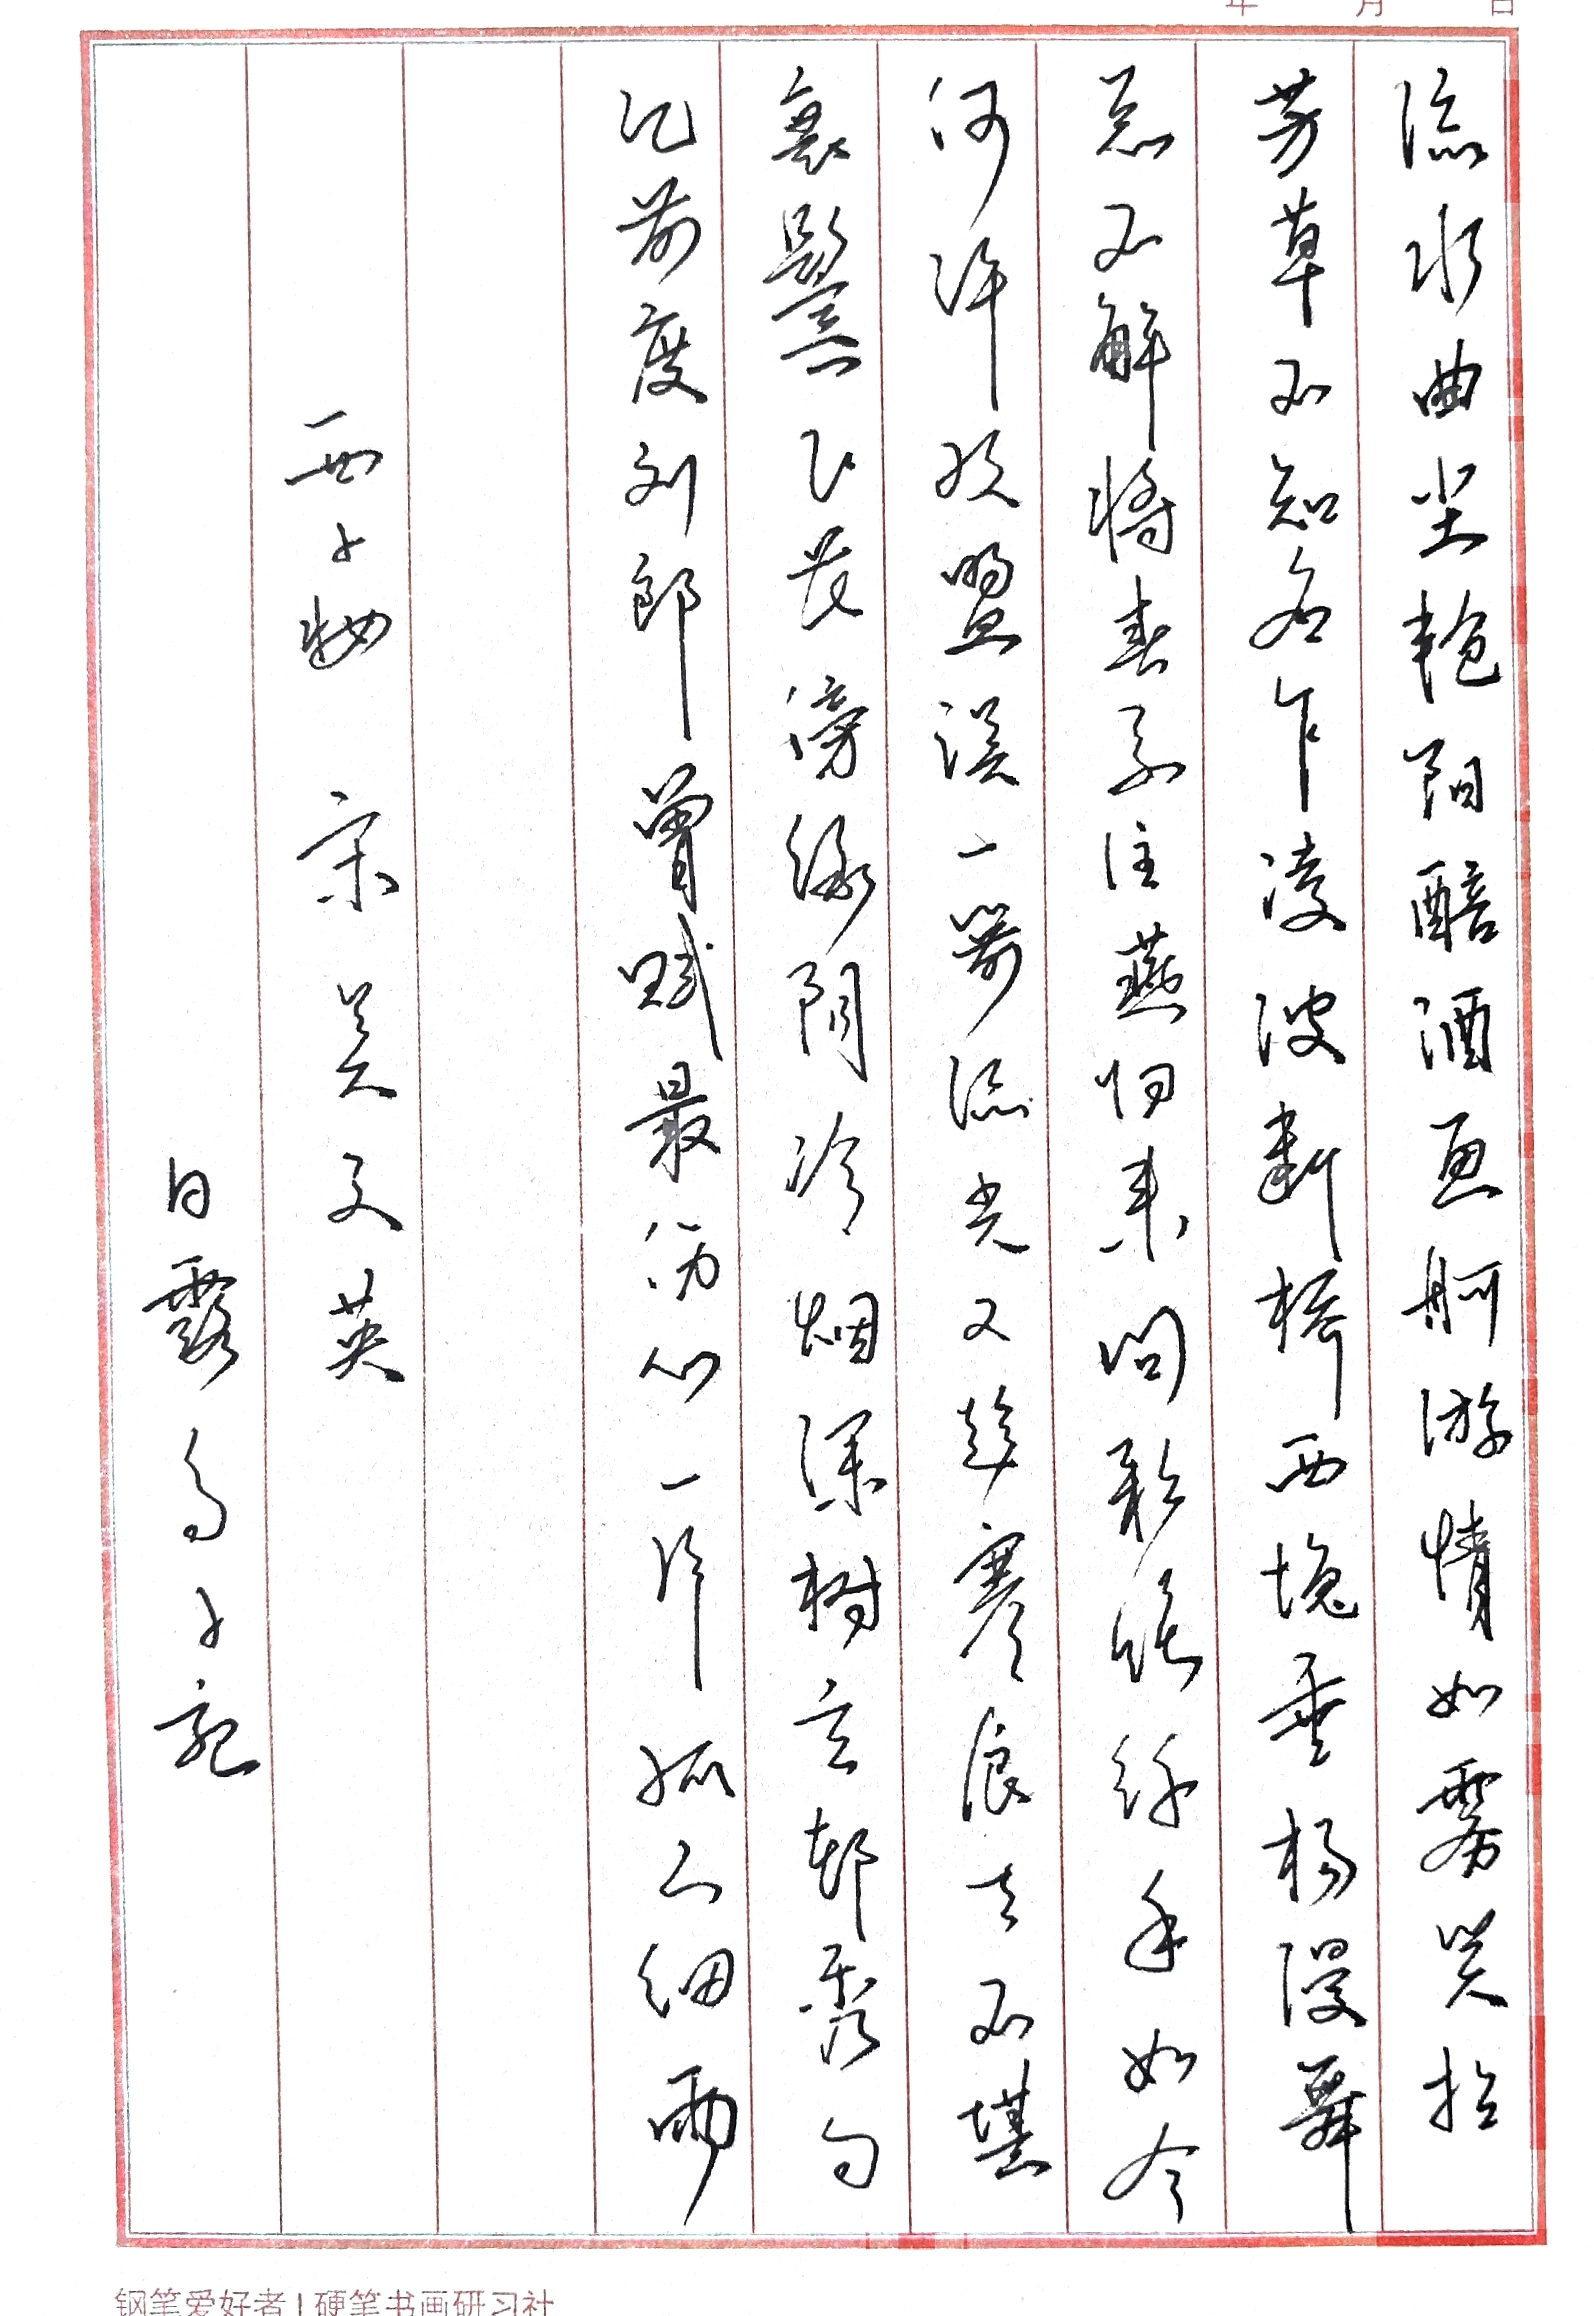 年 月 日
流水曲尘艳阳醅酒画舸游情如雾笑拈
芳草不知名乍凌波断桥西堍垂杨漫舞
总不解将春系住燕归来问彩绳纤手如今
何许欢盟误一箭流光又趁寒食去不堪
衰鬓飞花傍绿阴冷烟深树玄都秀句
记前度刘郎曾赋最伤心一片孤山细雨
西子妝 宋 吴文英
白露为子記
钢笔爱好者 | 硬笔书画研习社